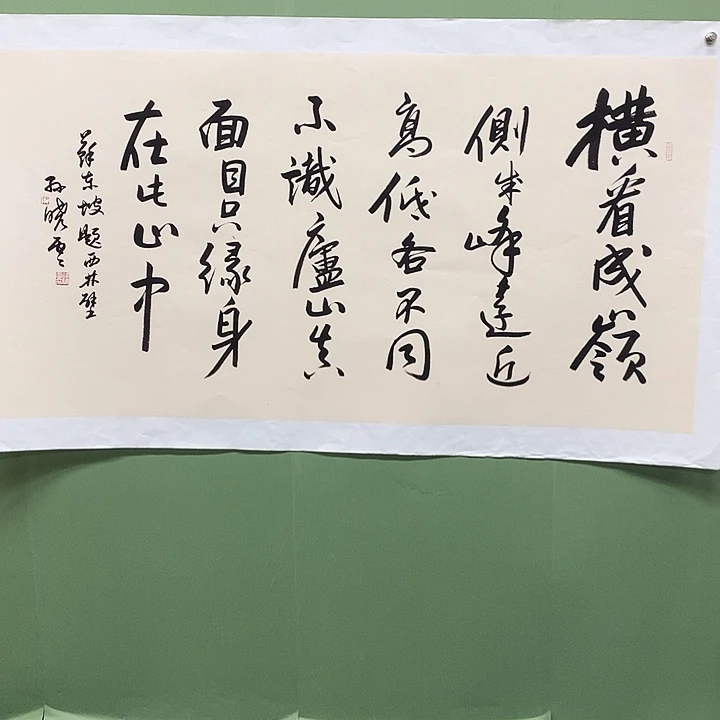 橫看成嶺
側成峰遠近
高低各不同
不識廬山真
面目只緣身
在此山中
蘇東坡題西林壁
孙曉雲